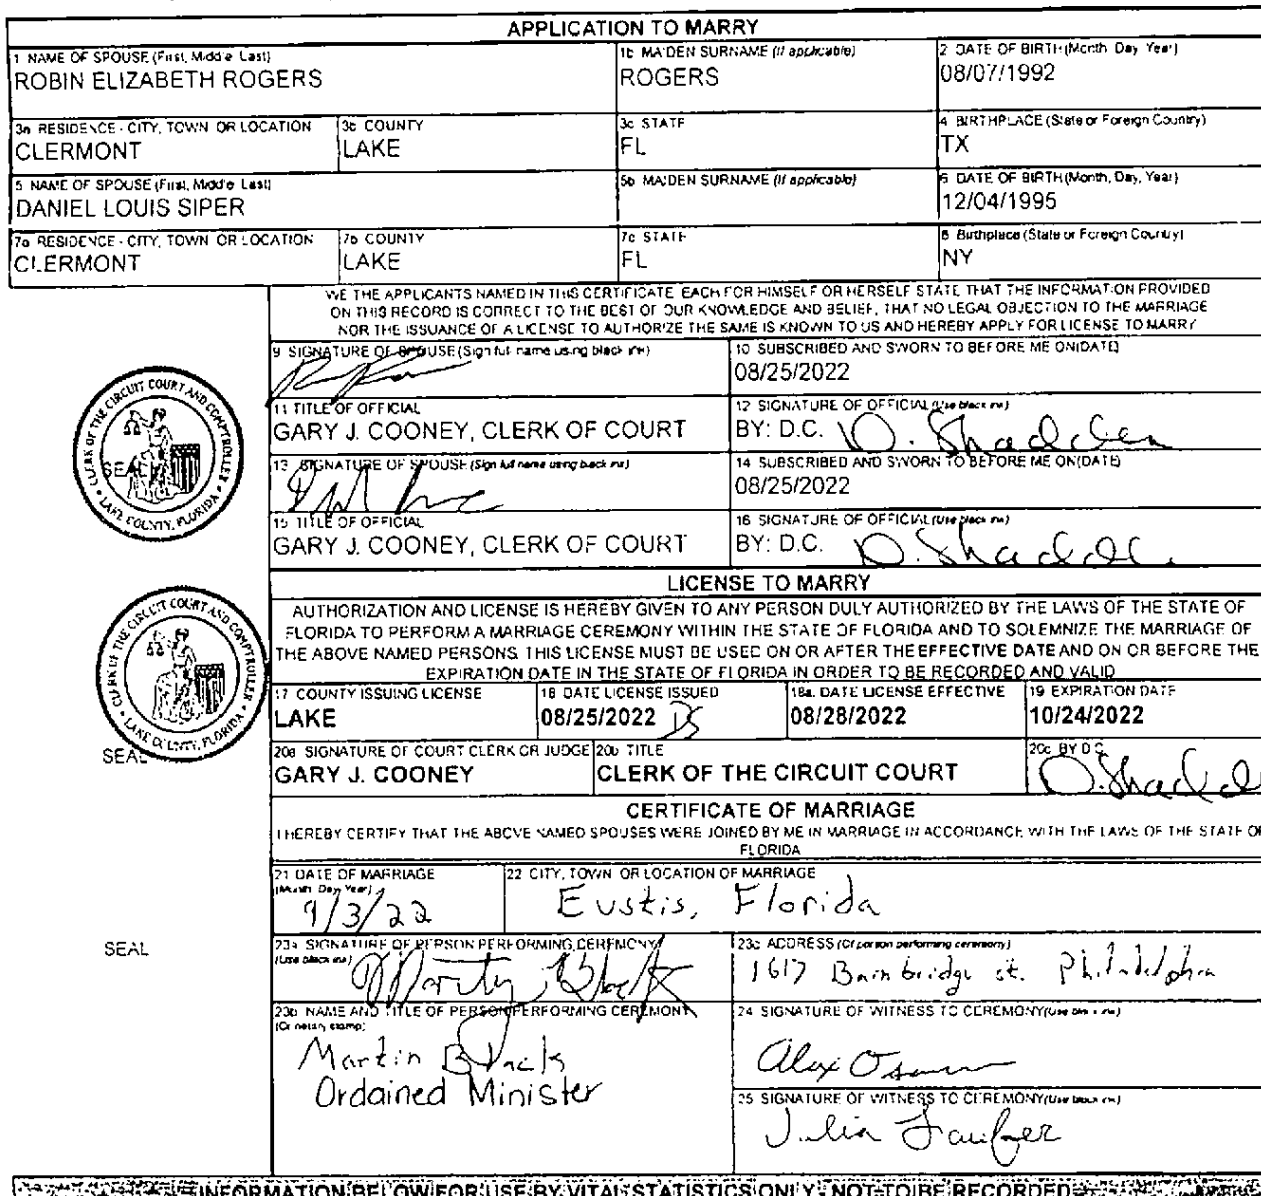 APPLICATION TO MARRY
1 NAME OF SPOUSE (First, Middle Last)
ROBIN ELIZABETH ROGERS
1b MAIDEN SURNAME (If applicable)
ROGERS
2 DATE OF BIRTH (Month Day Year)
08/07/1992
3a RESIDENCE - CITY, TOWN OR LOCATION
CLERMONT
3b COUNTY
LAKE
3c STATE
FL
4 BIRTHPLACE (State or Foreign Country)
TX
5 NAME OF SPOUSE (First, Middle Last)
DANIEL LOUIS SIPER
5b MAIDEN SURNAME (If applicable)
6 DATE OF BIRTH (Month, Day, Year)
12/04/1995
7a RESIDENCE - CITY, TOWN OR LOCATION
CLERMONT
7b COUNTY
LAKE
7c STATE
FL
8 Birthplace (State or Foreign Country)
NY
WE THE APPLICANTS NAMED IN THIS CERTIFICATE EACH FOR HIMSELF OR HERSELF STATE THAT THE INFORMATION PROVIDED
ON THIS RECORD IS CORRECT TO THE BEST OF OUR KNOWLEDGE AND BELIEF, THAT NO LEGAL OBJECTION TO THE MARRIAGE
NOR THE ISSUANCE OF A LICENSE TO AUTHORIZE THE SAME IS KNOWN TO US AND HEREBY APPLY FOR LICENSE TO MARRY
9 SIGNATURE OF SPOUSE (Sign full name using black ink)
10 SUBSCRIBED AND SWORN TO BEFORE ME ON (DATE)
08/25/2022
CLERK OF THE CIRCUIT COURT AND COMPTROLLER
LAKE COUNTY, FLORIDA
SEAL
11 TITLE OF OFFICIAL
GARY J. COONEY, CLERK OF COURT
12 SIGNATURE OF OFFICIAL (Use black ink)
BY: D.C. D. Shadden
13 SIGNATURE OF SPOUSE (Sign full name using black ink)
14 SUBSCRIBED AND SWORN TO BEFORE ME ON (DATE)
08/25/2022
15 TITLE OF OFFICIAL
GARY J. COONEY, CLERK OF COURT
16 SIGNATURE OF OFFICIAL (Use black ink)
BY: D.C.
LICENSE TO MARRY
AUTHORIZATION AND LICENSE IS HEREBY GIVEN TO ANY PERSON DULY AUTHORIZED BY THE LAWS OF THE STATE OF
FLORIDA TO PERFORM A MARRIAGE CEREMONY WITHIN THE STATE OF FLORIDA AND TO SOLEMNIZE THE MARRIAGE OF
THE ABOVE NAMED PERSONS THIS LICENSE MUST BE USED ON OR AFTER THE EFFECTIVE DATE AND ON OR BEFORE THE
EXPIRATION DATE IN THE STATE OF FLORIDA IN ORDER TO BE RECORDED AND VALID
CLERK OF THE CIRCUIT COURT AND COMPTROLLER
LAKE COUNTY, FLORIDA
SEAL
17 COUNTY ISSUING LICENSE
LAKE
18 DATE LICENSE ISSUED
08/25/2022 DS
18a. DATE LICENSE EFFECTIVE
08/28/2022
19 EXPIRATION DATE
10/24/2022
20a SIGNATURE OF COURT CLERK OR JUDGE
GARY J. COONEY
20b TITLE
CLERK OF THE CIRCUIT COURT
20c BY D.C.
CERTIFICATE OF MARRIAGE
I HEREBY CERTIFY THAT THE ABOVE NAMED SPOUSES WERE JOINED BY ME IN MARRIAGE IN ACCORDANCE WITH THE LAWS OF THE STATE OF
FLORIDA
21 DATE OF MARRIAGE
(Month Day Year)
9/3/22
22 CITY, TOWN OR LOCATION OF MARRIAGE
Eustis, Florida
SEAL
23a SIGNATURE OF PERSON PERFORMING CEREMONY
(Use black ink)
23c ADDRESS (Of person performing ceremony)
1617 Bainbridge st. Philadelphia
23b NAME AND TITLE OF PERSON PERFORMING CEREMONY
(Or notary stamp)
Martin Black
Ordained Minister
24 SIGNATURE OF WITNESS TO CEREMONY (Use black ink)
Alex
25 SIGNATURE OF WITNESS TO CEREMONY (Use black ink)
Julia
INFORMATION BELOW FOR USE BY VITAL STATISTICS ONLY - NOT TO BE RECORDED